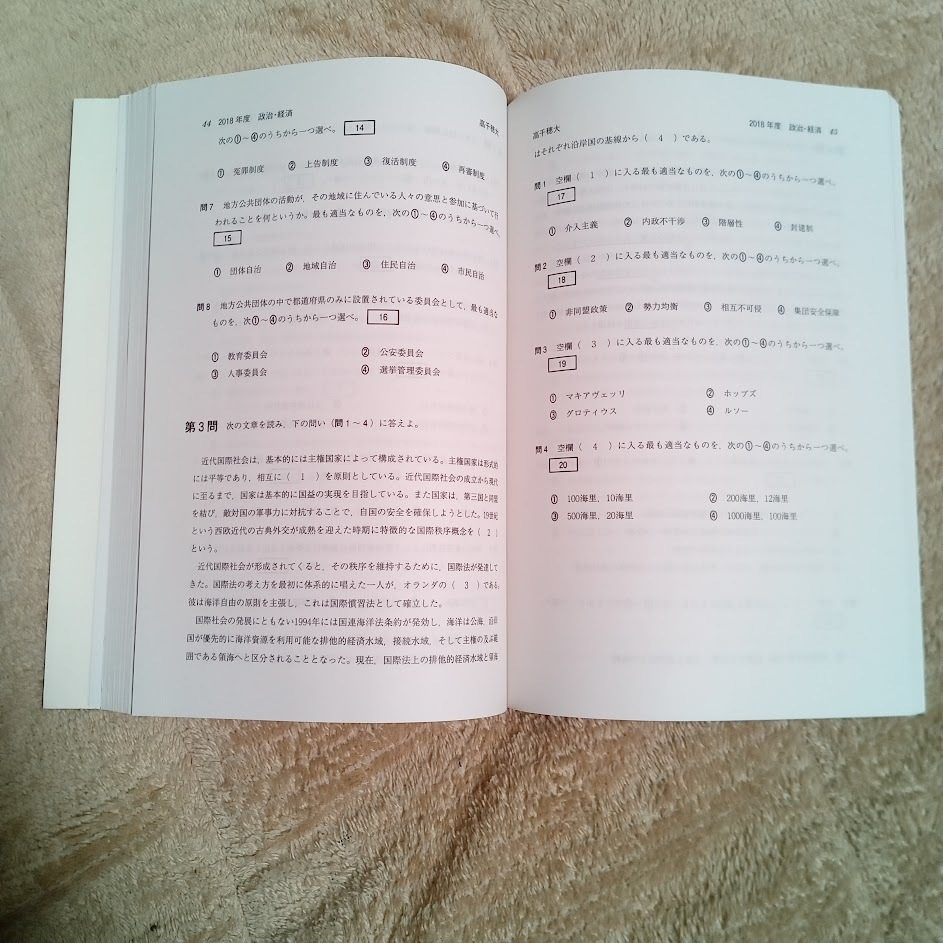 44 2018年度 政治・経済
高千穂大
次の①～④のうちから一つ選べ。 14
① 冤罪制度 ② 上告制度 ③ 復活制度 ④ 再審制度
問7 地方公共団体の活動が，その地域に住んでいる人々の意思と参加に基づいて行
われることを何というか。最も適当なものを，次の①～④のうちから一つ選べ。
15
① 団体自治 ② 地域自治 ③ 住民自治 ④ 市民自治
問8 地方公共団体の中で都道府県のみに設置されている委員会として，最も適当な
ものを，次①～④のうちから一つ選べ。 16
① 教育委員会 ② 公安委員会
③ 人事委員会 ④ 選挙管理委員会
第3問 次の文章を読み，下の問い（問1～4）に答えよ。
近代国際社会は，基本的には主権国家によって構成されている。主権国家は形式的
には平等であり，相互に（ 1 ）を原則としている。近代国際社会の成立から現代
に至るまで，国家は基本的に国益の実現を目指している。また国家は，第三国と同盟
を結び，敵対国の軍事力に対抗することで，自国の安全を確保しようとした。19世紀
という西欧近代の古典外交が成熟を迎えた時期に特徴的な国際秩序概念を（ 2 ）
という。
近代国際社会が形成されてくると，その秩序を維持するために，国際法が発達して
きた。国際法の考え方を最初に体系的に唱えた一人が，オランダの（ 3 ）である。
彼は海洋自由の原則を主張し，これは国際慣習法として確立した。
国際社会の発展にともない1994年には国連海洋法条約が発効し，海洋は公海，沿岸
国が優先的に海洋資源を利用可能な排他的経済水域，接続水域，そして主権の及ぶ範
囲である領海へと区分されることとなった。現在，国際法上の排他的経済水域と領海
高千穂大
2018年度 政治・経済 45
はそれぞれ沿岸国の基線から（ 4 ）である。
問1 空欄（ 1 ）に入る最も適当なものを，次の①～④のうちから一つ選べ。
17
① 介入主義 ② 内政不干渉 ③ 階層性 ④ 封建制
問2 空欄（ 2 ）に入る最も適当なものを，次の①～④のうちから一つ選べ。
18
① 非同盟政策 ② 勢力均衡 ③ 相互不可侵 ④ 集団安全保障
問3 空欄（ 3 ）に入る最も適当なものを，次の①～④のうちから一つ選べ。
19
① マキアヴェッリ ② ホッブズ
③ グロティウス ④ ルソー
問4 空欄（ 4 ）に入る最も適当なものを，次の①～④のうちから一つ選べ。
20
① 100海里，10海里 ② 200海里，12海里
③ 500海里，20海里 ④ 1000海里，100海里